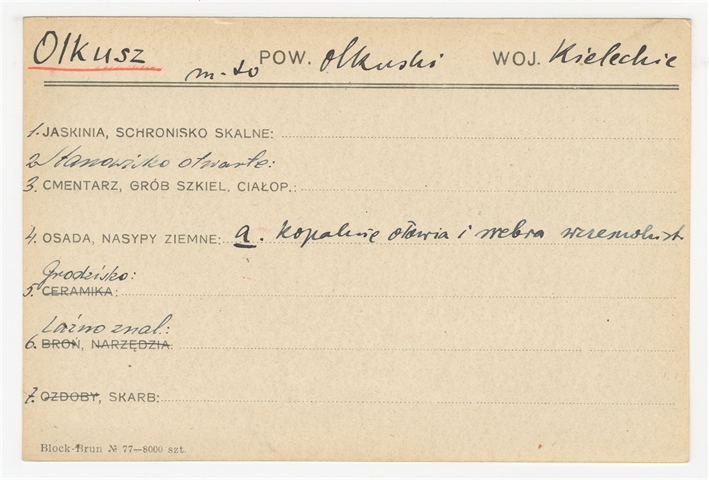 Olkusz m-to POW. olkuski WOJ. Kieleckie
1. JASKINIA, SCHRONISKO SKALNE:
2. Stanowisko otwarte:
3. CMENTARZ, GRÓB SZKIEL. CIAŁOP.:
4. OSADA, NASYPY ZIEMNE: a. Kopalnie ołowia i srebra wczesnohist
Grodzisko:
5. CERAMIKA:
Luźno znal.:
6. BROŃ, NARZĘDZIA:
7. OZDOBY, SKARB:
Block-Brun № 77—8000 szt.